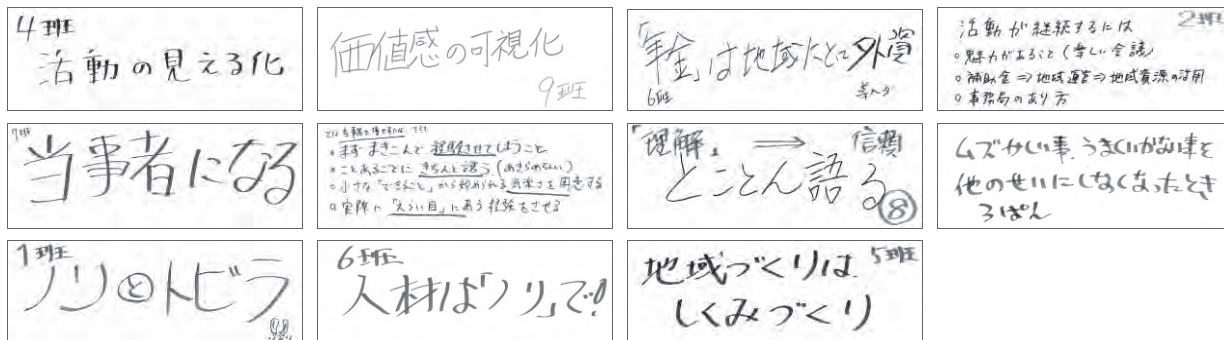 4班
活動の見える化
価値感の可視化
9班
「年金」は地域にとって外資
6班
2班
活動が継続するには
○魅力があること(楽しい会議)
○補助金⇒地域運営⇒地域資源の活用
○事務局のあり方
7班
当事者になる
○まずまきこんで経験させてしまうこと
○ことあるごとにきちんと語る(あきらめない)
○小さな「できること」から始められる気楽さを用意する
○実際に「えらい目」にあう経験をさせる
「理解」⇒信頼
とことん語る
⑧
ムズカしい事、うまくいかない事を
他のせいにしなくなったとき
3ぱん
1班
ノリとトビラ
6班
人材は「ノリ」で!
5班
地域づくりは
しくみづくり